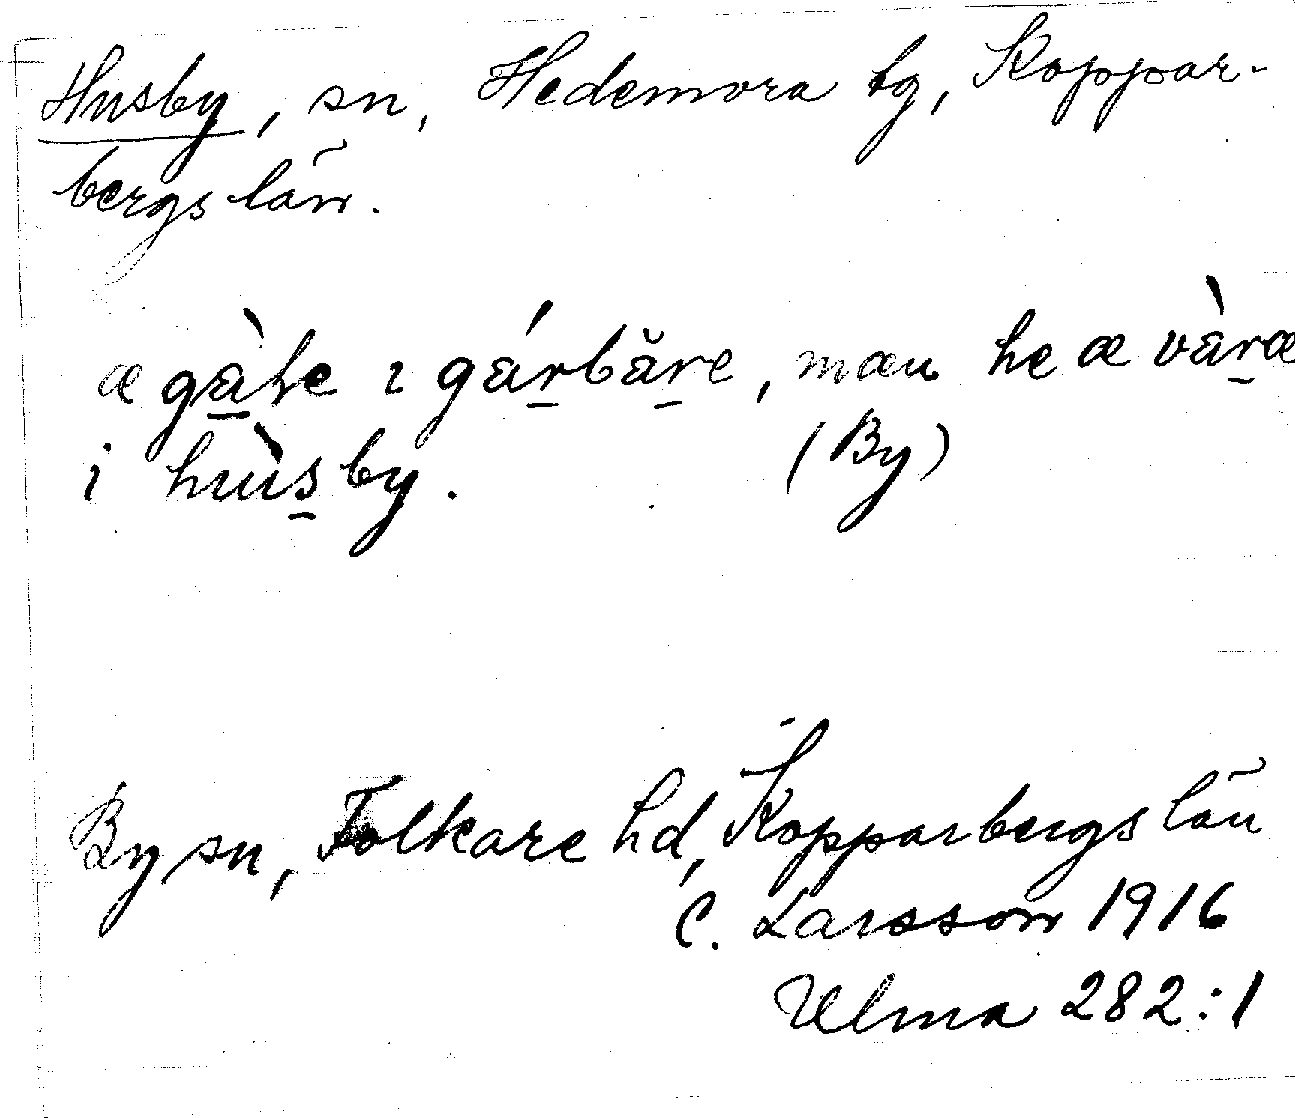 Husby, sn, Hedemora tg, Koppar-
bergs län.
æ gà̱te ı gáṟbăṟe, mæn he æ vàṟæ
i huùs̱by. (By)
By sn, Folkare hd, Kopparbergs län
C. Larsson 1916
Ulma 282:1